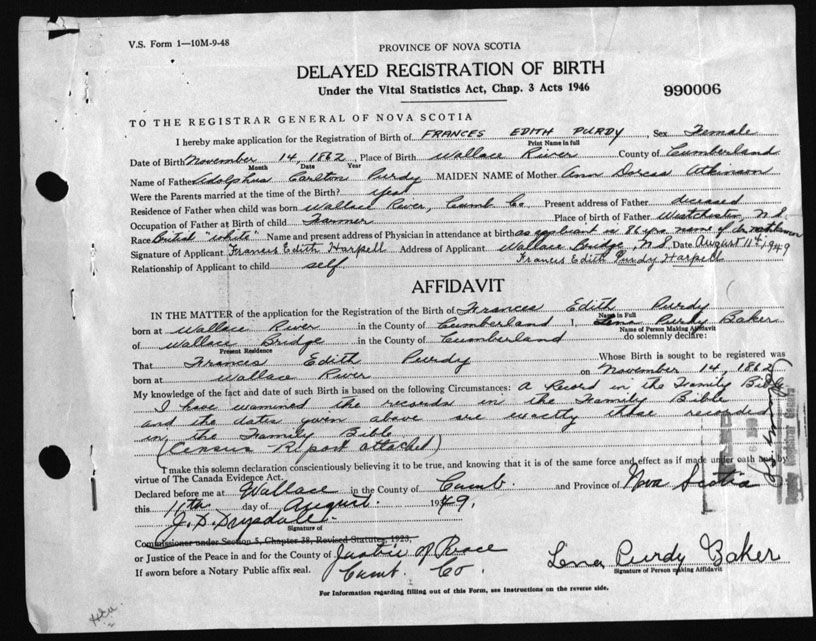 V.S. Form 1—10M-9-48
PROVINCE OF NOVA SCOTIA
DELAYED REGISTRATION OF BIRTH
Under the Vital Statistics Act, Chap. 3 Acts 1946
990006
TO THE REGISTRAR GENERAL OF NOVA SCOTIA
I hereby make application for the Registration of Birth of FRANCES EDITH PURDY, Sex Female
Print Name in full
Date of Birth November 14, 1862, Place of Birth Wallace River County of Cumberland
Month Date Year
Name of Father Adolphus Carlton Purdy MAIDEN NAME of Mother Ann Dorcas Atkinson
Were the Parents married at the time of the Birth? yes
Residence of Father when child was born Wallace River, Cumb Co Present address of Father deceased
Occupation of Father at Birth of child Farmer Place of birth of Father Westchester, N.S.
Race British "white" Name and present address of Physician in attendance at birth as applicant is 86 yrs name of dr not known
Signature of Applicant Francis Edith Harpell Address of Applicant Wallace Bridge, N.S. Date August 11th, 1949
Relationship of Applicant to child self Francis Edith Purdy Harpell
AFFIDAVIT
IN THE MATTER of the application for the Registration of the Birth of Frances Edith Purdy
Name in Full
born at Wallace River in the County of Cumberland I, Lena Purdy Baker
Name of Person Making Affidavit
of Wallace Bridge in the County of Cumberland do solemnly declare:
Present Residence
That Frances Edith Purdy Whose Birth is sought to be registered was
born at Wallace River on November 14, 1862
My knowledge of the fact and date of such Birth is based on the following Circumstances: A Record in the Family Bible
I have examined the records in the Family Bible
and the dates given above are exactly those recorded
in the Family Bible
(Census Report attached)
I make this solemn declaration conscientiously believing it to be true, and knowing that it is of the same force and effect as if made under oath and by
virtue of The Canada Evidence Act.
Declared before me at Wallace in the County of Cumb. and Province of Nova Scotia
this 11th day of August 1949.
J. D. Drysdale
Signature of
Commissioner under Section 5, Chapter 38, Revised Statutes, 1923,
or Justice of the Peace in and for the County of Justice of Peace
If sworn before a Notary Public affix seal. Cumb. Co.
Lena Purdy Baker
Signature of Person making Affidavit
For Information regarding filling out of this Form, see instructions on the reverse side.